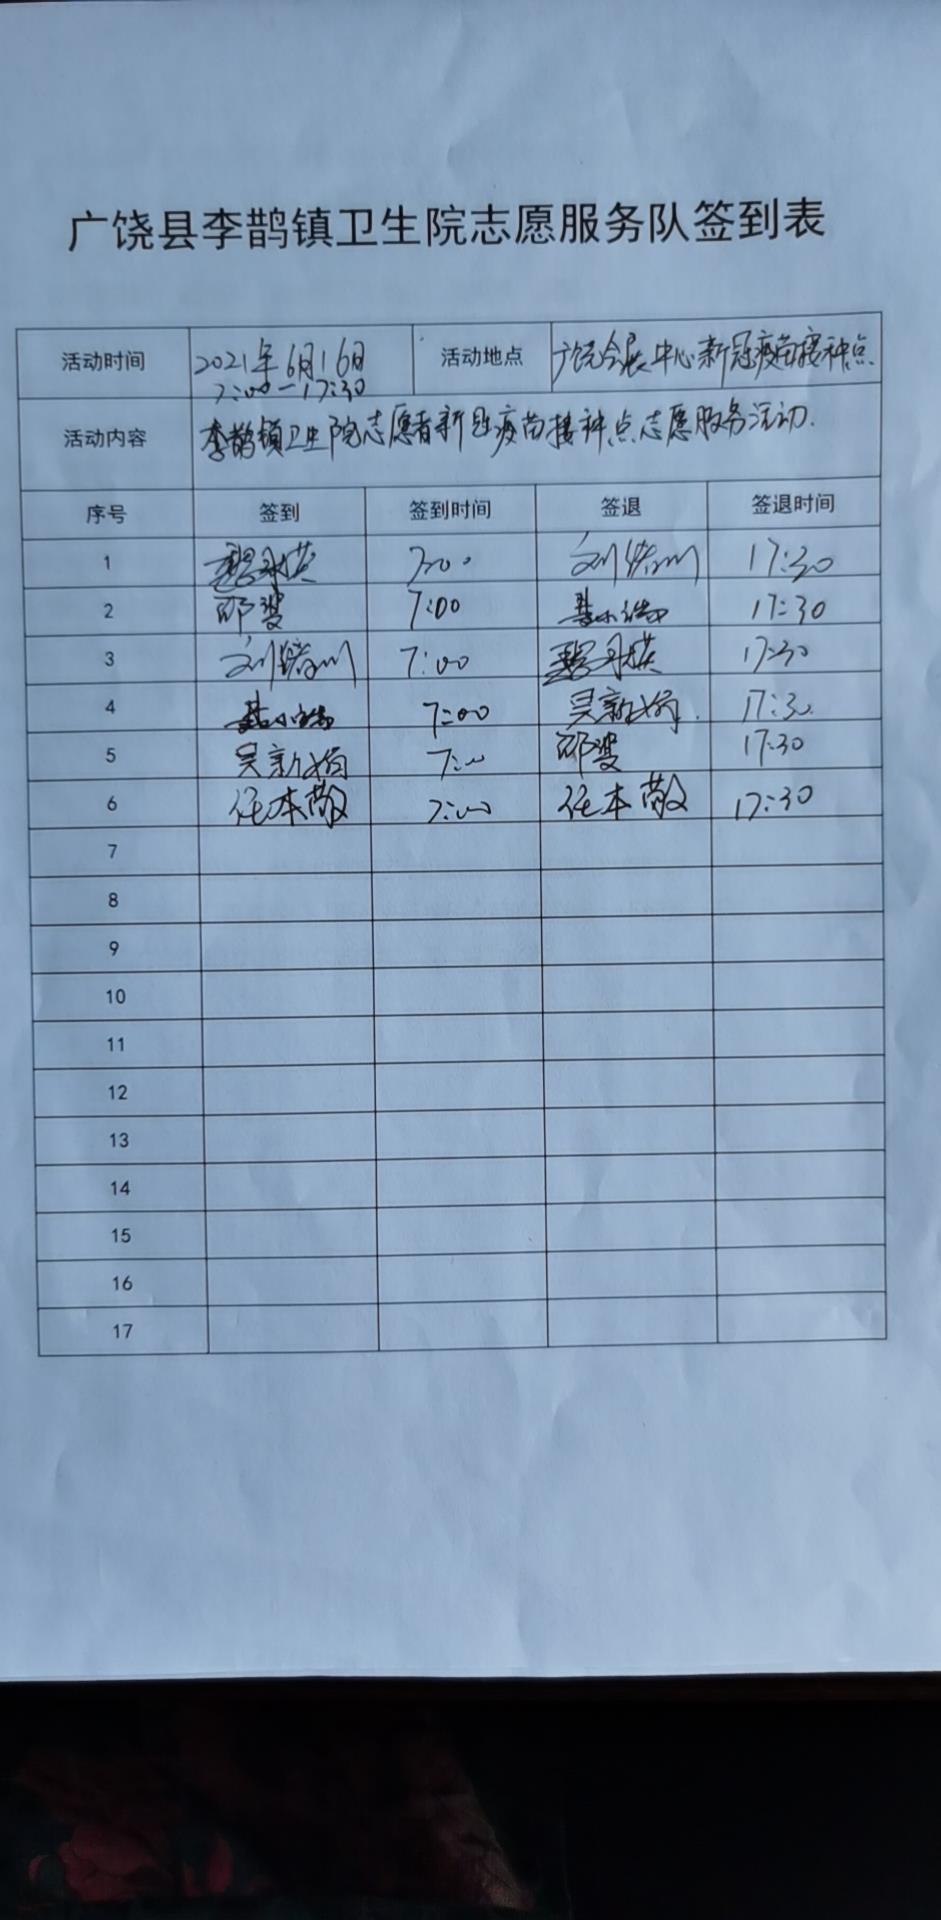 广饶县李鹊镇卫生院志愿服务队签到表
活动时间 2021年6月16日 7:00-17:30 活动地点 广饶会展中心新冠疫苗接种点
活动内容 李鹊镇卫生院志愿者新冠疫苗接种点志愿服务活动.
序号 签到 签到时间 签退 签退时间
1 7:00 17:30
2 7:00 17:30
3 7:00 17:30
4 7:00 吴新娟 17:30
5 吴新娟 7:00 17:30
6 任本敬 7:00 任本敬 17:30
7
8
9
10
11
12
13
14
15
16
17